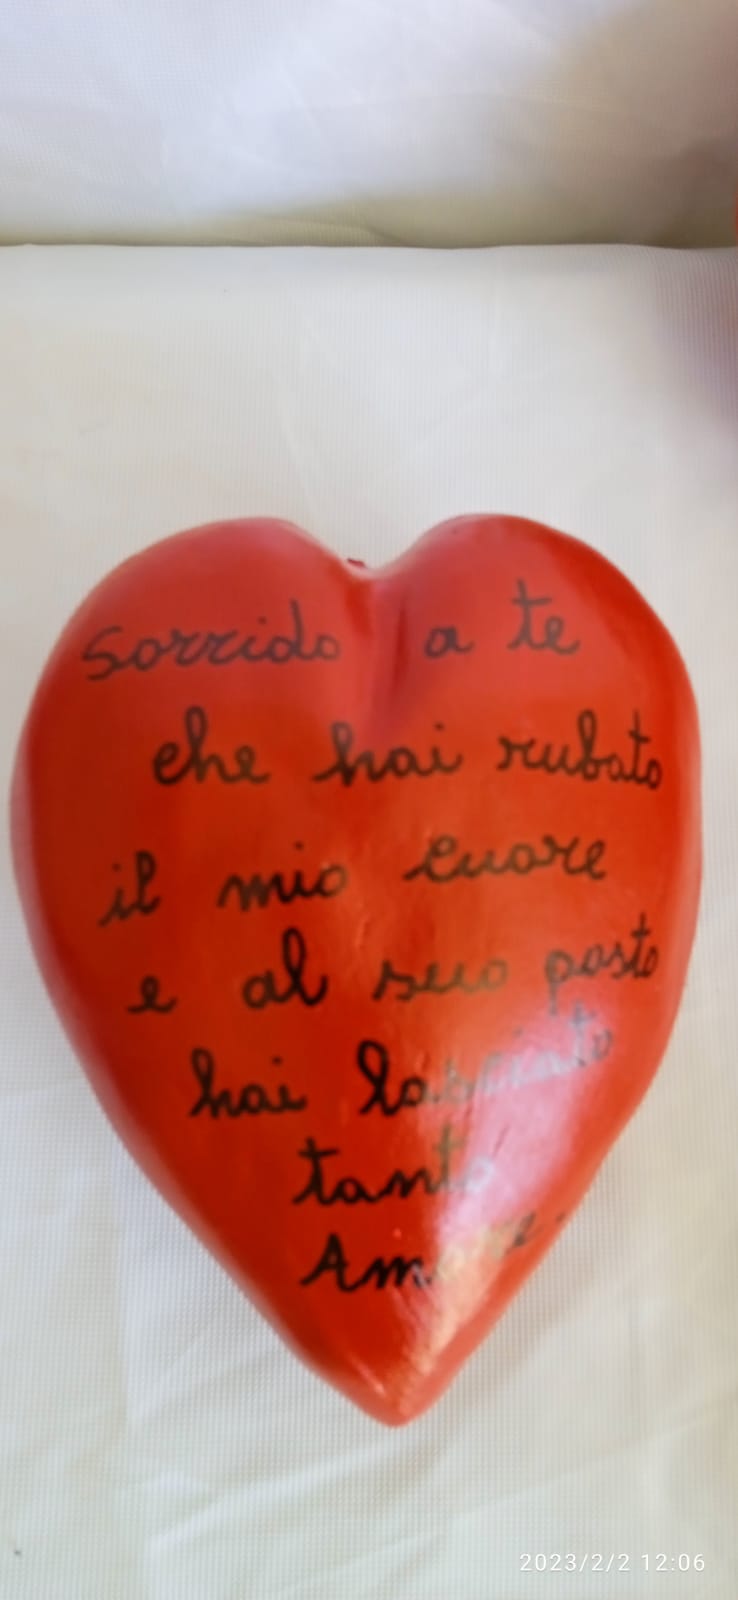 Sorrido a te
che hai rubato
il mio cuore
e al suo posto
hai lasciato
tanto
Amore.
2023/2/2 12:06